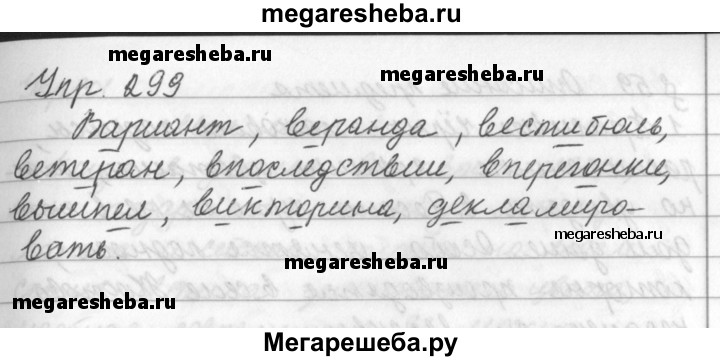 megaresheba.ru
megaresheba.ru
Упр. 299
megaresheba.ru
Вариант, веранда, вестибюль,
ветеран, впоследствии, вперегонки,
вымпел, викторина, деклamиро-
megaresheba.ru
вать.
megaresheba.ru
megaresheba.ru
Мегарешеба.ру